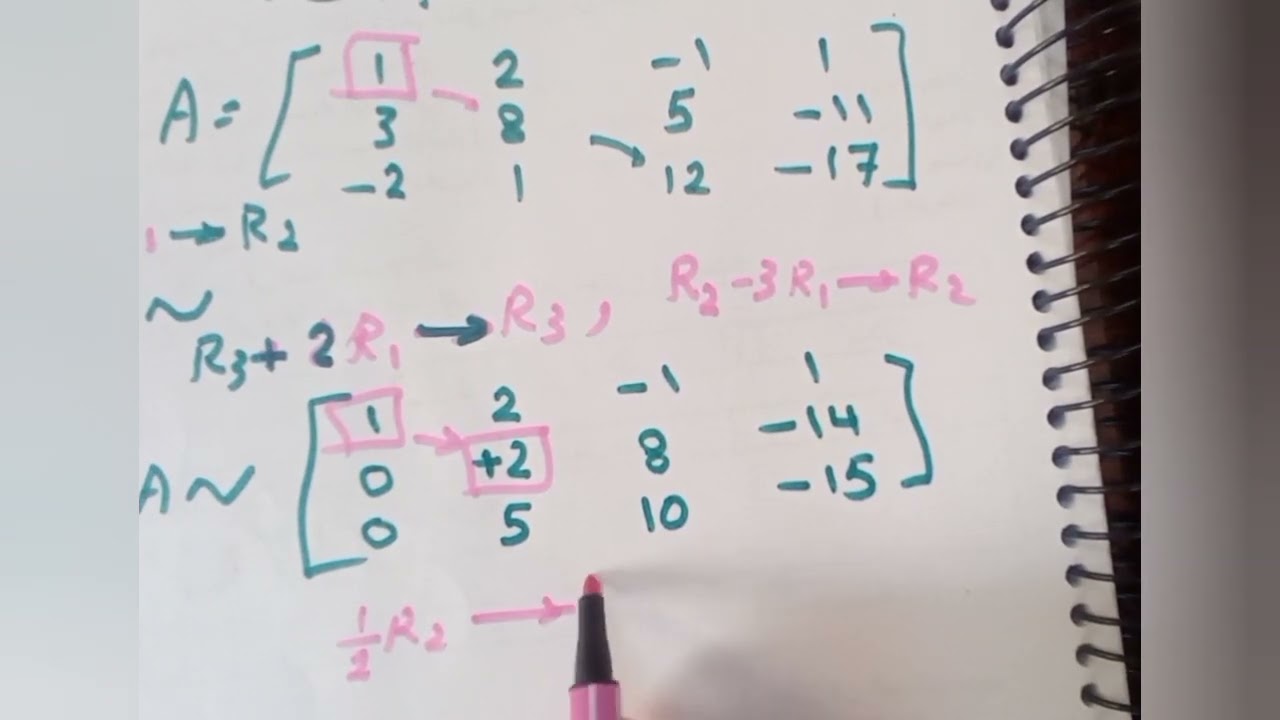 A = [ 1 2 -1 1
3 8 5 -11
-2 1 12 -17 ]
1 → R2
~
R3 + 2R1 → R3 , R2 - 3R1 → R2
A ~ [ 1 2 -1 1
0 +2 8 -14
0 5 10 -15 ]
1/2 R2 →